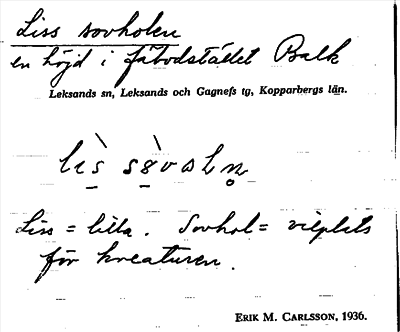 Liss sovholen
en höjd i fäbodstället Balk
Leksands sn, Leksands och Gagnefs tg, Kopparbergs län.
Liss = lilla. Sovhol = viloplats
för kreaturen.
ERIK M. CARLSSON, 1936.